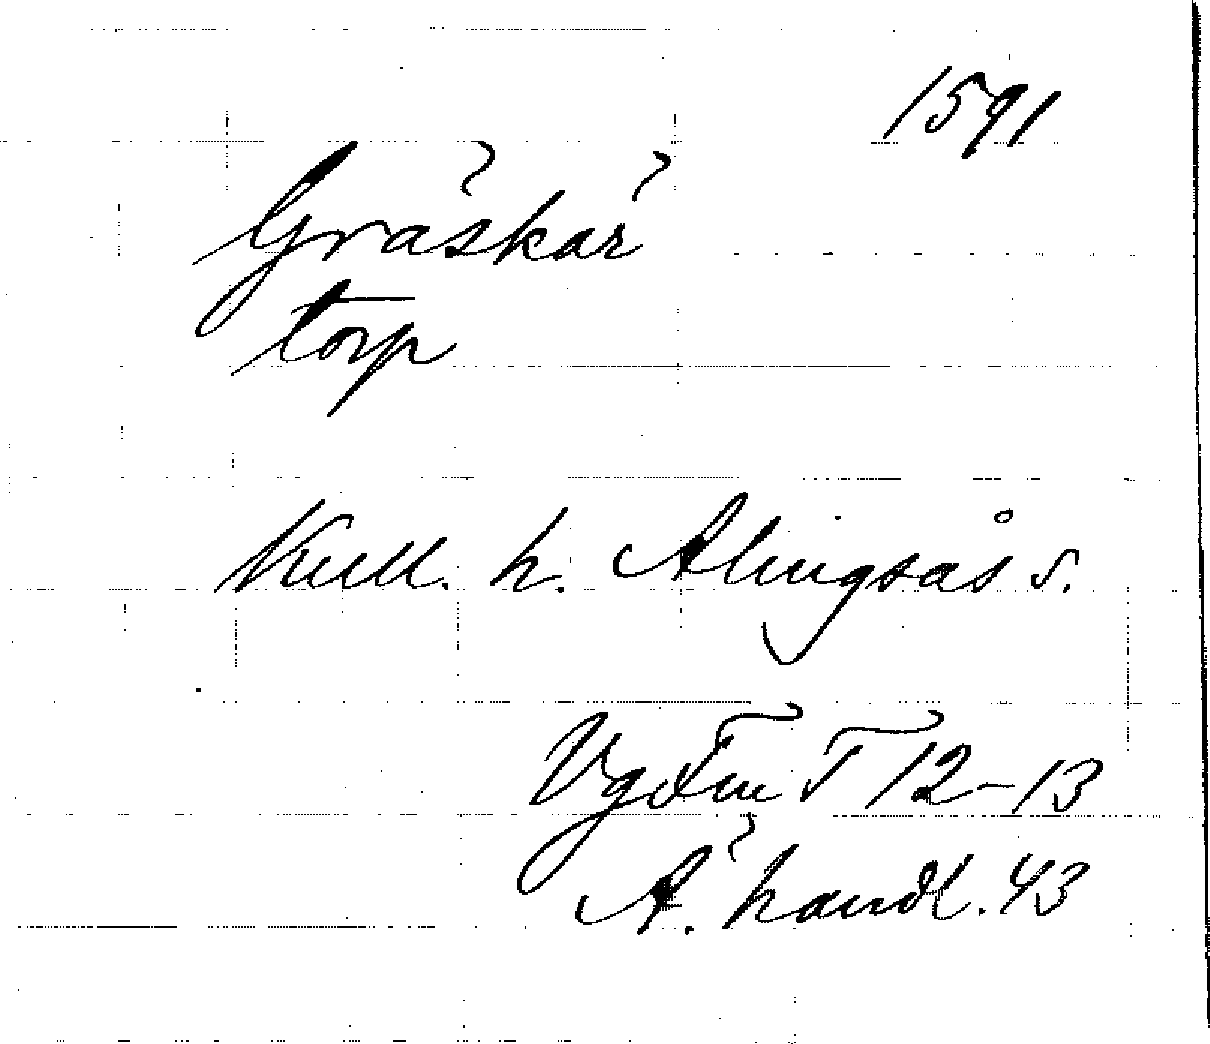 1591
Gräskär
torp
Kull. h. Alingsås s.
VgFm T 12-13
Ä. handl. 43